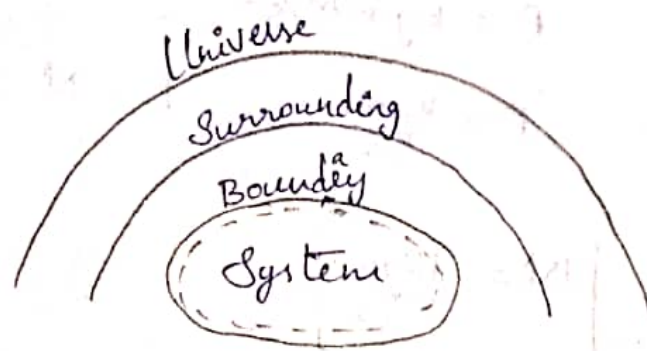 Universe
Surrounding
Boundary
System